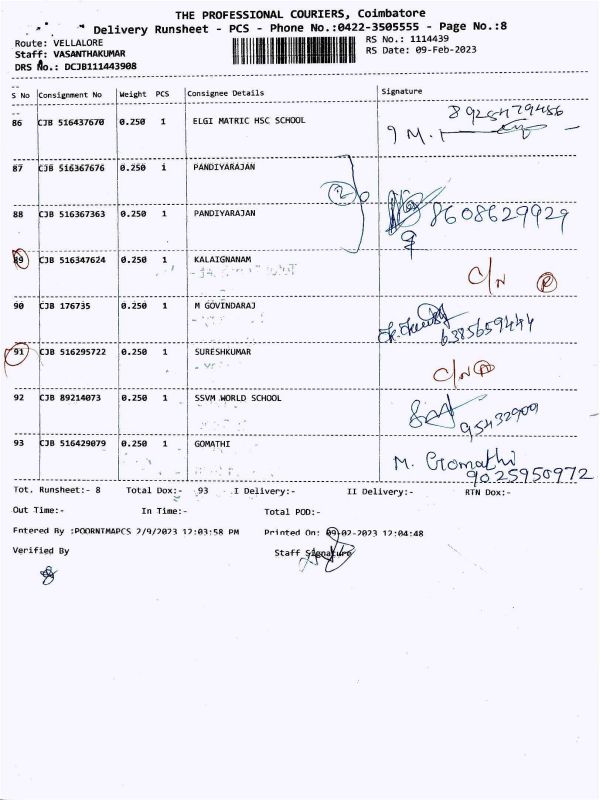 THE PROFESSIONAL COURIERS, Coimbatore
Delivery Runsheet - PCS - Phone No.:0422-3505555 - Page No.:8
Route: VELLALORE RS No.: 1114439
Staff: VASANTHAKUMAR RS Date: 09-Feb-2023
DRS No.: DCJB111443908
S No Consignment No Weight PCS Consignee Details Signature
86 CJB 516437670 0.250 1 ELGI MATRIC HSC SCHOOL 8925479486
87 CJB 516367676 0.250 1 PANDIYARAJAN
2
88 CJB 516367363 0.250 1 PANDIYARAJAN 8608629929
89 CJB 516347624 0.250 1 KALAIGNANAM C/N R
90 CJB 176735 0.250 1 M GOVINDARAJ 6385659444
91 CJB 516295722 0.250 1 SURESHKUMAR C/N
92 CJB 89214073 0.250 1 SSVM WORLD SCHOOL 95432909
93 CJB 516429079 0.250 1 GOMATHI M. Gomathi
9025950972
Tot. Runsheet:- 8 Total Dox:- 93 I Delivery:- II Delivery:- RTN Dox:-
Out Time:- In Time:- Total POD:-
Entered By :POORNIMAPCS 2/9/2023 12:03:58 PM Printed On: 09-02-2023 12:04:48
Verified By Staff Signature